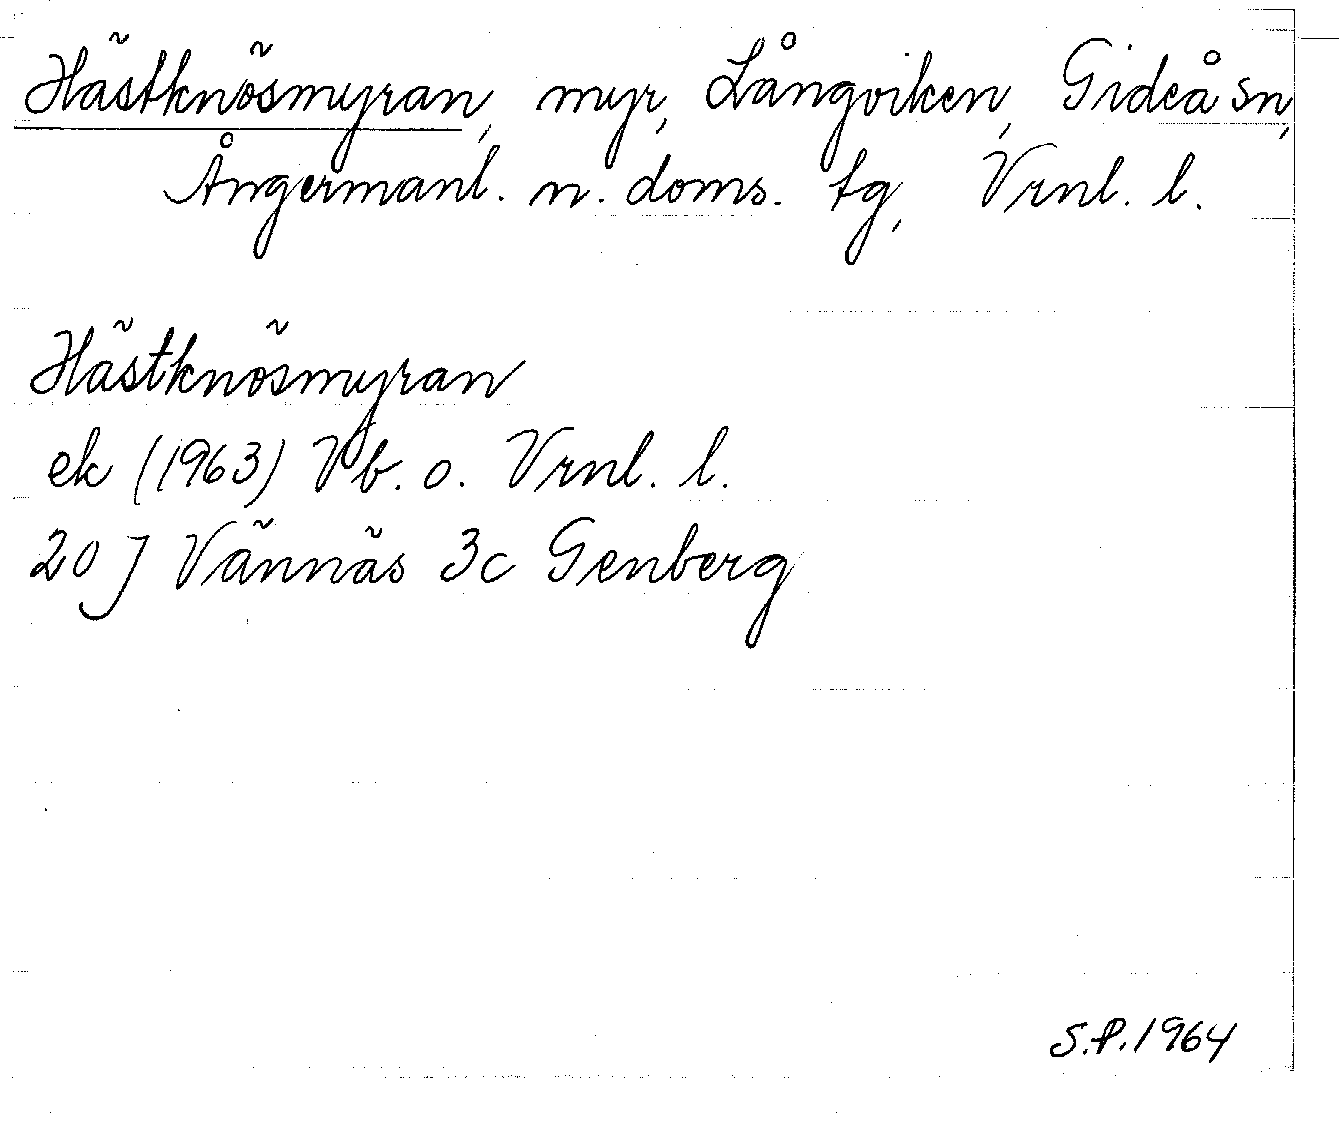 Hästknösmyran, myr, Långviken, Gideå sn,
Ångermanl. n. doms. tg, Vrnl. l.
Hästknösmyran
ek (1963) Vb. o. Vrnl. l.
20 J Vännäs 3c Genberg
S.P. 1964